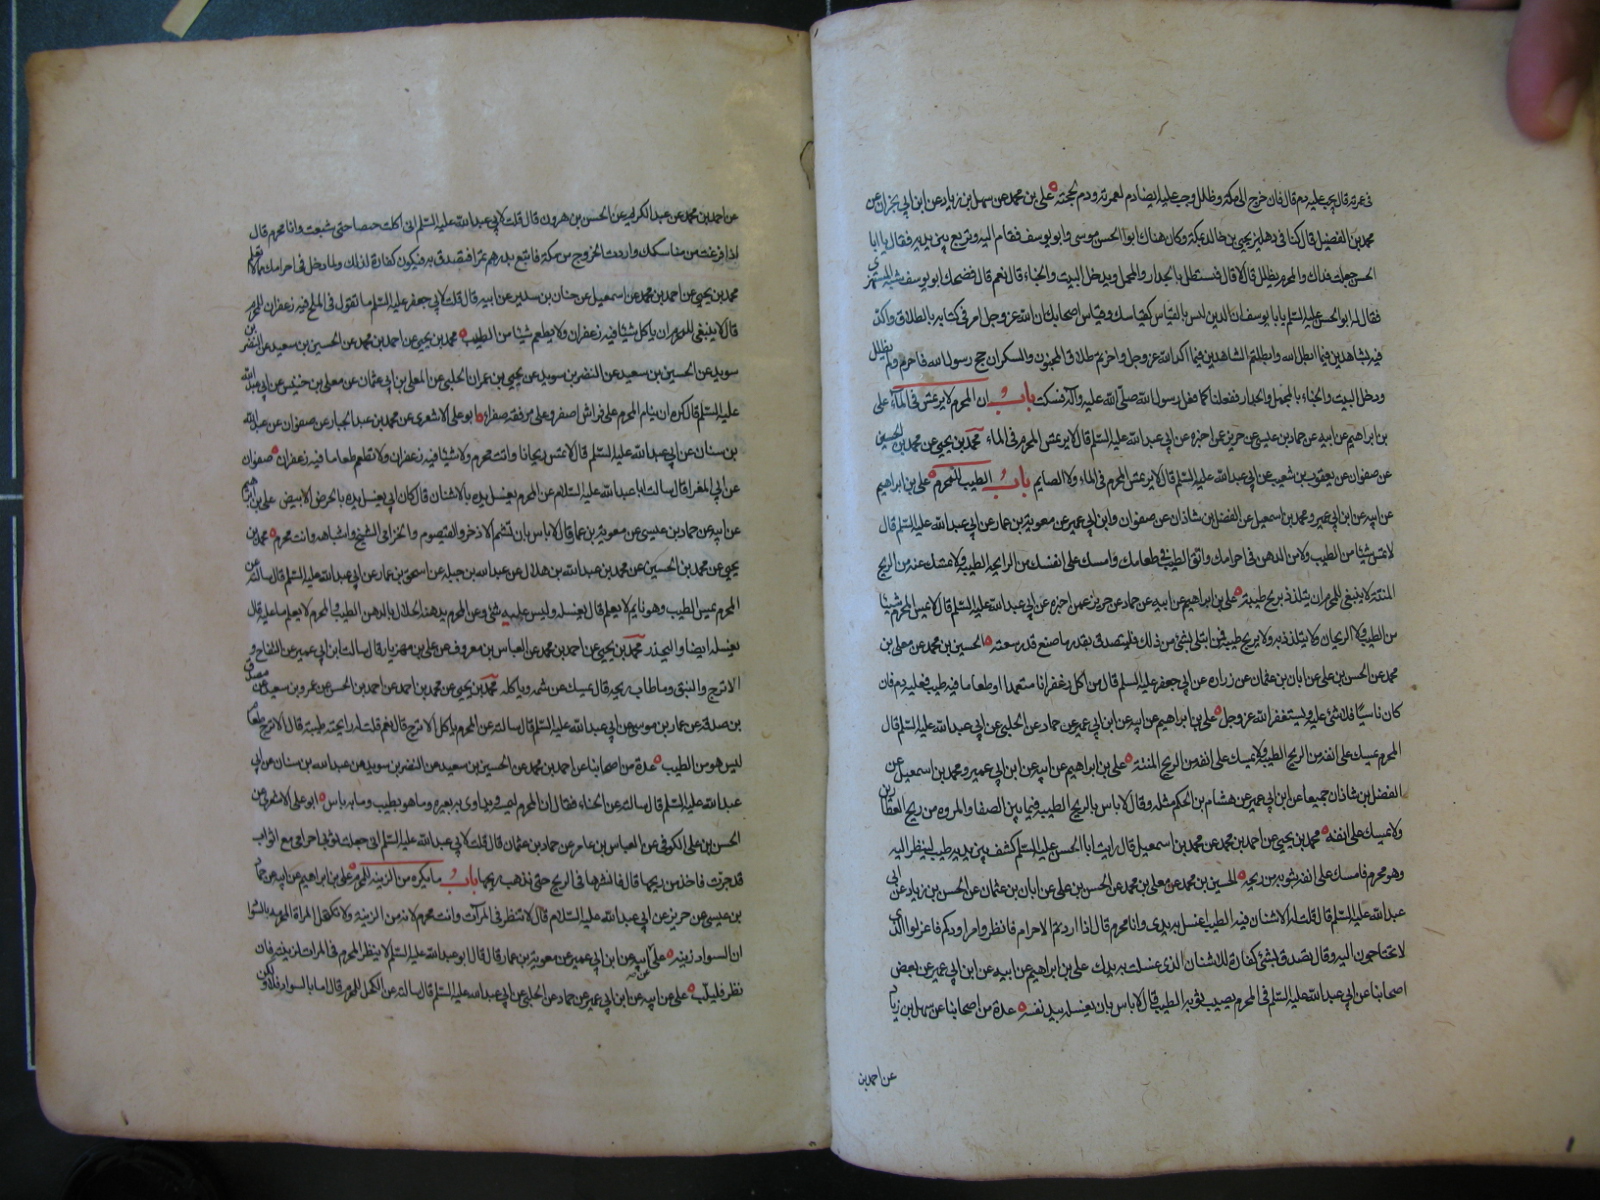 فى عمرته قال يجب عليه دم قال فان خرج الى مكة وظلل وجب عليه ايضا دم لعمرته ودم لحجته علي بن محمد عن سهل بن زياد عن ابن ابي نجران عن
محمد بن الفضيل قال كنا فى دهليز يحيى بن خالد بمكة وكان هناك ابو الحسن موسى وابو يوسف فقام اليه وتربع بين يديه فقال يا ابا
الحسن جعلت فداك والمحرم يظلل قال لا قال فيستظل بالجدار والمحمل ويدخل البيت والخباء قال نعم قال فضحك ابو يوسف شبه المستهزئ
فقال له ابو الحسن عليه السلم يا با يوسف ان الدين ليس بالقياس كقياسك وقياس اصحابك ان الله عز وجل امر فى كتابه بالطلاق واكد
فيه بشاهدين فيما ابطل الله وابطلتم الشاهدين فيما اكد الله عز وجل واجزتم طلاق المجنون والسكران حج رسول الله فاحرم ولم يظلل
ودخل البيت والخباء بالمحمل والجدار ففعلنا كما فعل رسول الله صلى الله عليه وآله فسكت باب ان المحرم لا يرتمس فى الماء علي
بن ابراهيم عن ابيه عن حماد بن عيسى عن حريز عن اخبره عن ابي عبد الله عليه السلم قال لا يرتمس المحرم فى الماء محمد بن يحيى عن محمد بن الحسين
عن صفوان عن يعقوب بن شعيب عن ابي عبد الله عليه السلم قال لا يرتمس المحرم فى الماء ولا الصايم باب الطيب للمحرم علي بن ابراهيم
عن ابيه عن ابن ابي عمير ومحمد بن اسمعيل عن الفضل بن شاذان عن صفوان وابن ابي عمير عن معوية بن عمار عن ابي عبد الله عليه السلم قال
لا تمس شيئا من الطيب ولا من الدهن فى احرامك واتق الطيب فى طعامك وامسك على انفك من الرايحة الطيبة ولا تمسك عنه من الريح
المنتنة لا ينبغى للمحرم ان يتلذذ بريح طيبة علي بن ابراهيم عن ابيه عن حماد عن حريز عمن اخبره عن ابي عبد الله عليه السلم قال لا يمس المحرم شيئا
من الطيب ولا الريحان ولا يتلذذ به ولا بريح طيبة فمن ابتلى بشئ من ذلك فليتصدق بقدر ما صنع قدر سعته الحسين بن محمد عن معلى بن
محمد عن الحسن بن علي عن ابان بن عثمان عن زراره عن ابي جعفر عليه السلم قال من اكل زعفرانا متعمدا او طعاما فيه طيب فعليه دم فان
كان ناسيا فلا شئ عليه ويستغفر الله عز وجل علي بن ابراهيم عن ابيه عن ابن ابي عمير عن حماد عن الحلبي عن ابي عبد الله عليه السلم قال
المحرم يمسك على انفه من الريح الطيبة ولا يمسك على انفه من الريح المنتنة علي بن ابراهيم عن ابيه عن ابن ابي عمير ومحمد بن اسمعيل عن
الفضل بن شاذان جميعا عن ابن ابي عمير عن هشام بن الحكم مثله وقال لا باس بالريح الطيبة فيما بين الصفا والمروه من ريح العطارين
ولا يمسك على انفه محمد بن يحيى عن احمد بن محمد عن محمد بن اسمعيل قال رايت ابا الحسن عليه السلم كشف بين يديه طيب لينظر اليه
وهو محرم فامسك على انفه بثوبه من ريحه الحسين بن محمد عن معلى بن محمد عن الحسن بن علي عن ابان بن عثمان عن الحسن بن زياد عن ابي
عبد الله عليه السلم قال قلت له الاشنان فيه الطيب اغسل به يدى وانا محرم قال اذا اردتم الاحرام فانظروا مزاودكم فاعزلوا الذى
لا تحتاجون اليه وقال تصدق بشئ كفارة للاشنان الذى غسلت به يدك علي بن ابراهيم عن ابيه عن ابن ابي عمير عن بعض
اصحابنا عن ابي عبد الله عليه السلم فى المحرم يصيب ثوبه الطيب قال لا باس بان يغسله بيد نفسه عدة من اصحابنا عن سهل بن زياد
عن احمد بن
عن احمد بن محمد عن عبد الكريم عن الحسن بن هرون قال قلت لابي عبد الله عليه السلم انى اكلت خبيصا حتى شبعت وانا محرم قال
اذا فرغت من مناسكك واردت الخروج من مكة فابتع بدرهم تمرا فتصدق به فيكون كفارة لذلك ولما دخل فى احرامك مما لا تعلم
محمد بن يحيى عن احمد بن محمد عن اسمعيل عن حنان بن سدير عن ابيه قال قلت لابي جعفر عليه السلم ما تقول فى الملح فيه زعفران للمحرم
قال لا ينبغى للمحرم ان ياكل شيئا فيه زعفران ولا يطعم شيئا من الطيب محمد بن يحيى عن احمد بن محمد عن الحسين بن سعيد عن النضر بن
سويد عن الحسين بن سعيد عن النضر بن سويد عن يحيى بن عمران الحلبى عن المعلى بن ابي عثمان عن معلى بن خنيس عن ابي عبد الله
عليه السلم قال كره ان ينام المحرم على فراش اصفر وعلى مرفقة صفراء ابو على الاشعرى عن محمد بن عبد الجبار عن صفوان عن عبد الله
بن سنان عن ابي عبد الله عليه السلم قال لا تمس ريحانا وانت محرم ولا شيئا فيه زعفران ولا تطعم طعاما فيه زعفران صفوان
عن ابي المغرا قال سالت ابا عبد الله عليه السلام عن المحرم يغسل يده بالاشنان قال كان ابي يغسل يده بالحرض الابيض علي بن ابراهيم
عن ابيه عن حماد بن عيسى عن معوية بن عمار قال لا باس بان تشم الاذخر والقيصوم والخزامى والشيح واشباهه وانت محرم محمد بن
يحيى عن محمد بن الحسين عن محمد بن عبد الله بن هلال عن عبد الله بن جبله عن اسحق بن عمار عن ابي عبد الله عليه السلم قال سالته عن
المحرم يمس الطيب وهو نايم لا يعلم قال يغسله وليس عليه شئ وعن المحرم يدهنه الحلال بالدهن الطيب والمحرم لا يعلم ما عليه قال
يغسله ايضا وليحذر محمد بن يحيى عن احمد بن محمد عن العباس بن معروف عن علي بن مهزيار قال سالت ابن ابي عمير عن التفاح و
الاترج والنبق وما طاب ريحه قال تمسك عن شمه وياكله محمد بن يحيى عن محمد بن احمد عن احمد بن الحسن عن عمرو بن سعيد عن مصدق
بن صدقة عن عمار بن موسى عن ابي عبد الله عليه السلم قال سالته عن المحرم ياكل الاترج قال نعم قلت له رايحة طيبة قال الاترج طعام
ليس هو من الطيب عدة من اصحابنا عن احمد بن محمد عن الحسين بن سعيد عن النضر بن سويد عن عبد الله بن سنان عن ابي
عبد الله عليه السلم قال سالته عن الحناء فقال ان المحرم ليمسه ويداوى به بعيره وما هو بطيب وما به باس ابو على الاشعرى عن
الحسن بن علي الكوفى عن العباس بن عامر عن حماد بن عثمان قال قلت لابي عبد الله عليه السلم انى جعلت ثوبى احرامى مع اثواب
قد جمرت فاخذ من ريحها قال فانشرها فى الريح حتى تذهب ريحها باب ما يكره من الزينة للمحرم علي بن ابراهيم عن ابيه عن حماد
بن عيسى عن حريز عن ابي عبد الله عليه السلام قال لا تنظر فى المرآت وانت محرم لانه من الزينة ولا تكتحل المراة المحرمة بالسواد
ان السواد زينة علي عن ابيه عن ابن ابي عمير عن معوية بن عمار قال قال ابو عبد الله عليه السلم لا ينظر المحرم فى المرات لزينة فان
نظر فليلب علي عن ابيه عن ابن ابي عمير عن حماد عن الحلبي عن ابي عبد الله عليه السلم قال سالته عن الكحل للمحرم قال اما بالسواد فلا ولكن